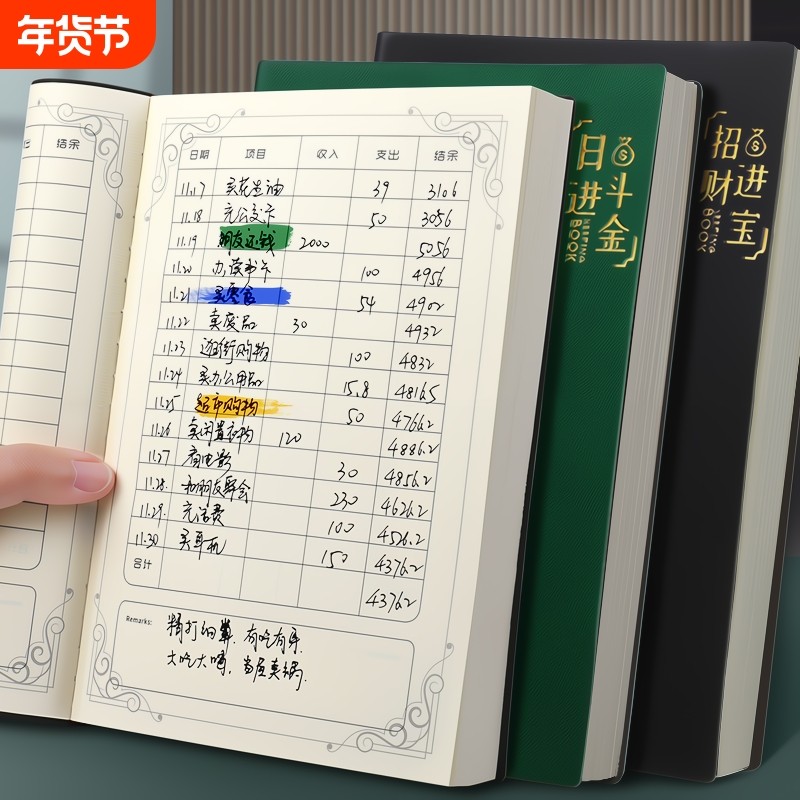 年货节
结余
日期 项目 收入 支出 结余
11.17 买花生油 39 3106
11.18 充公交卡 50 3056
11.19 朋友还钱 2000 5056
11.20 办读书卡 100 4956
11.21 买零食 54 4902
11.22 卖废品 30 4932
11.23 逛街购物 100 4832
11.24 买办公用品 15.8 4816.5
11.25 超市购物 50 4766.2
11.26 卖闲置衣物 120 4886.2
11.27 看电影 30 4856.2
11.28. 和朋友聚会 230 4626.2
11.29. 充话费 100 4526.2
11.30 买耳机 150 4376.2
合计 4376.2
Remarks:
精打细算,有吃有穿.
大吃大喝,当屋卖锅.
日进斗金
KEEPING BOOK
招财进宝
KEEPING BOOK